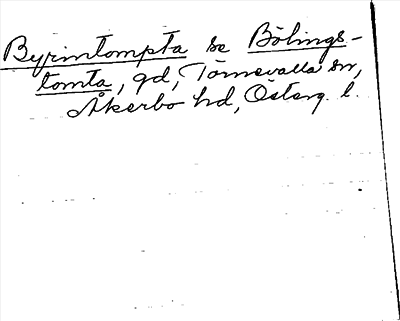 Byrintompta se Bölings-
tomta, gd, Törnevalla sn,
Åkerbo hd, Österg. l.